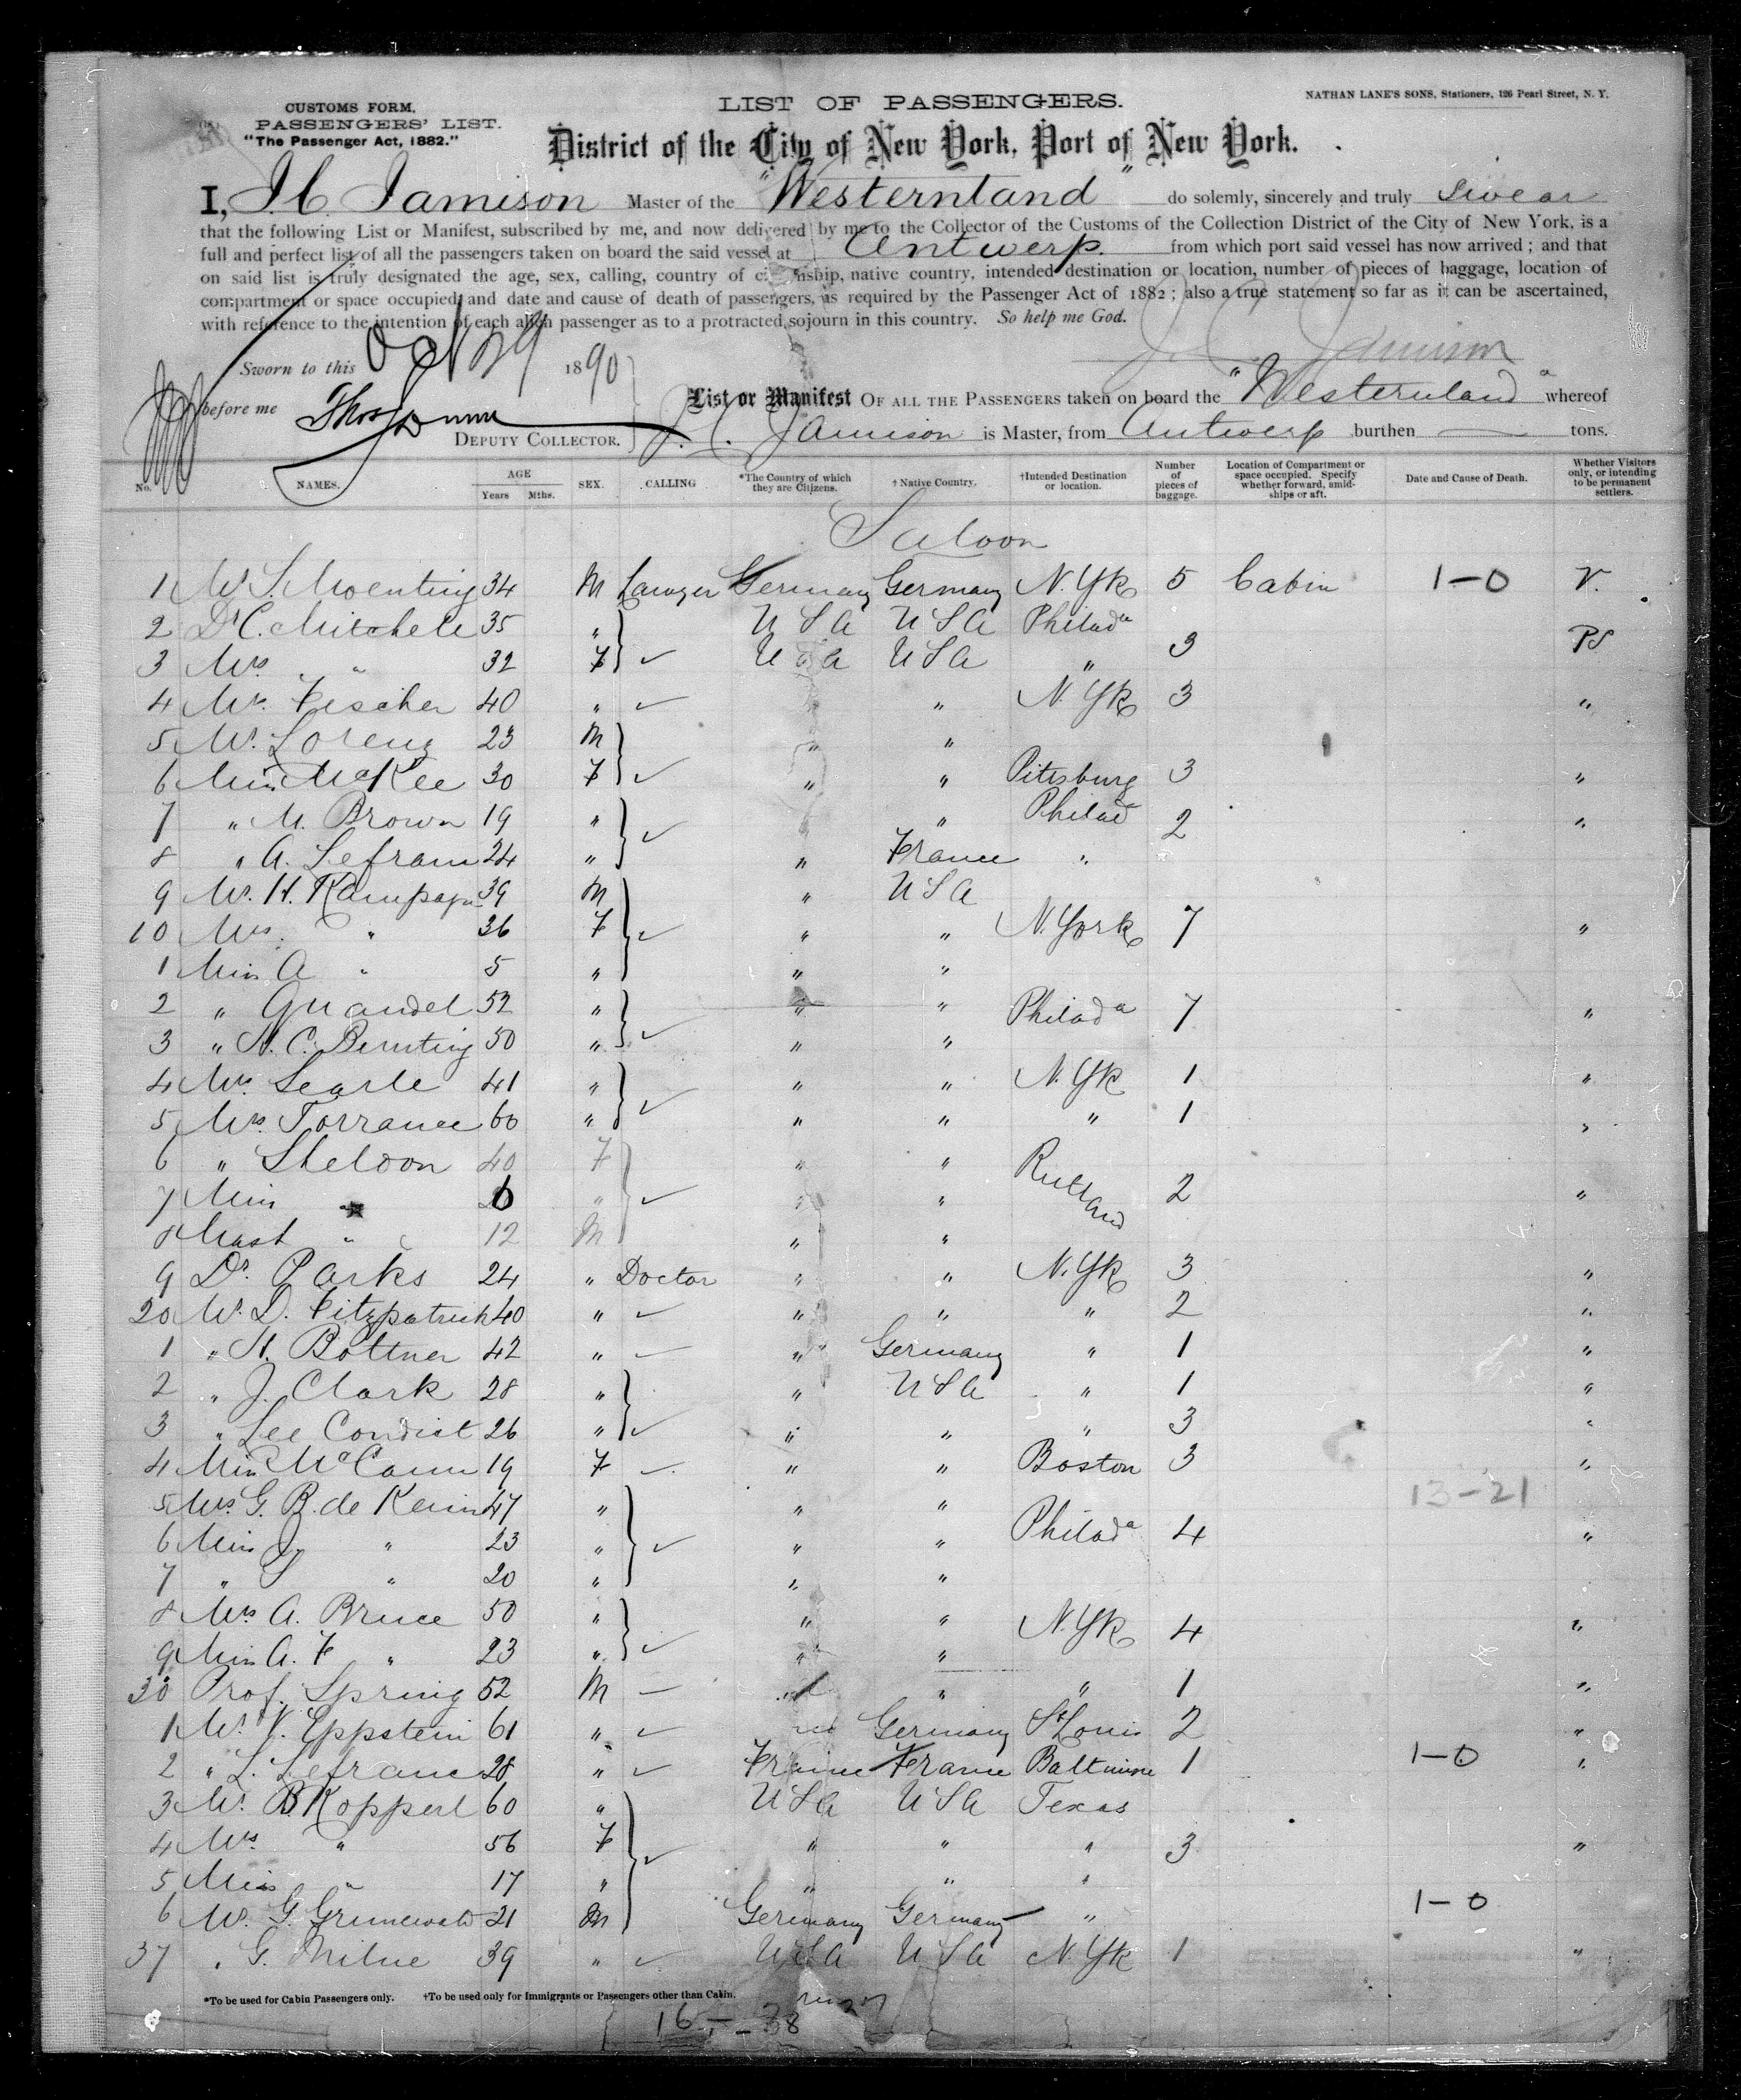 CUSTOMS FORM.
PASSENGERS' LIST.
"The Passenger Act, 1882."
LIST OF PASSENGERS.
NATHAN LANE'S SONS, Stationers, 126 Pearl Street, N. Y.
District of the City of New York, Port of New York.
I, J.C. Jamison Master of the "Westernland" do solemly, sincerely and truly swear
that the following List or Manifest, subscribed by me, and now delivered by me to the Collector of the Customs of the Collection District of the City of New York, is a
full and perfect list of all the passengers taken on board the said vessel at Antwerp. from which port said vessel has now arrived; and that
on said list is truly designated the age, sex, calling, country of citizenship, native country, intended destination or location, number of pieces of baggage, location of
compartment or space occupied, and date and cause of death of passengers, as required by the Passenger Act of 1882; also a true statement so far as it can be ascertained,
with reference to the intention of each alien passenger as to a protracted sojourn in this country. So help me God.
J. C. Jamison
Sworn to this Oct 29 1890
before me
DEPUTY COLLECTOR.
List or Manifest OF ALL THE PASSENGERS taken on board the "Westernland" whereof
J. C. Jamison is Master, from Antwerp burthen — tons.
No. NAMES. AGE Years Mths. SEX. CALLING *The Country of which they are Citizens. †Native Country. †Intended Destination or location. Number of pieces of baggage. Location of Compartment or space occupied. Specify whether forward, amidships or aft. Date and Cause of Death. Whether Visitors only, or intending to be permanent settlers.
Saloon
1 Mr S. Moenting 34 M Lawyer Germany Germany N. Yk 5 Cabin 1-0 V.
2 Dr C. Mitchell 35 " U S A U S A Philada
3 Mrs " 32 F ✓ U S A U S A " 3 PS
4 Mrs. Fischer 40 " ✓ " N. Yk 3 "
5 Mr. Lorenz 23 M " "
6 Miss McKee 30 F ✓ " " Pittsburg 3 "
7 " M. Brown 19 " ✓ " Philad 2 "
8 " A. Lefranc 24 " " France "
9 Mr. H. Kampagn 39 M " U S A
10 Mrs. " 36 F ✓ " " N. York 7 "
1 Miss A " 5 " " "
2 " Quandel 52 " " " Philada 7 "
3 " H. C. Bernting 50 " ✓ " "
4 Mrs Searle 41 " " " N. Yk 1 "
5 Mrs. Torrance 60 " ✓ " " " 1 "
6 " Sheldon 40 F " "
7 Miss " 6 " ✓ " " Rutland 2 "
8 Mast " 12 M " "
9 Dr. Parks 24 " Doctor " " N. Yk 3 "
20 Mr. D. Fitzpatrick 40 " ✓ " " " 2 "
1 " H. Bottner 42 " ✓ " Germany " 1 "
2 " J. Clark 28 " " U S A " 1 "
3 " Lee Condict 26 " ✓ " " " 3 "
4 Miss McCann 19 F ✓ " " Boston 3 "
5 Mrs G. B. de Keim 47 " " " 13-21
6 Miss J " 23 " ✓ " " Philada 4 "
7 " " 20 " " "
8 Mrs A. Bruce 50 " " " N. Yk 4 "
9 Miss A. F " 23 " ✓ " "
30 Prof. Spring 52 M — " " 1 "
1 Mr. V. Eppstein 61 " ✓ Germany St Louis 2 "
2 " L. Lefranc 28 " ✓ France France Baltimore 1 1-0 "
3 Mr. B Kopperl 60 " U S A U S A Texas
4 Mrs. " 56 F ✓ " " " 3 "
5 Miss " 17 " " " "
6 Mr. G. Grunewald 21 M Germany Germany " 1-0
37 " G. Milne 39 " ✓ U S A U S A N. Yk 1 "
*To be used for Cabin Passengers only. †To be used only for Immigrants or Passengers other than Cabin.
16 - 38